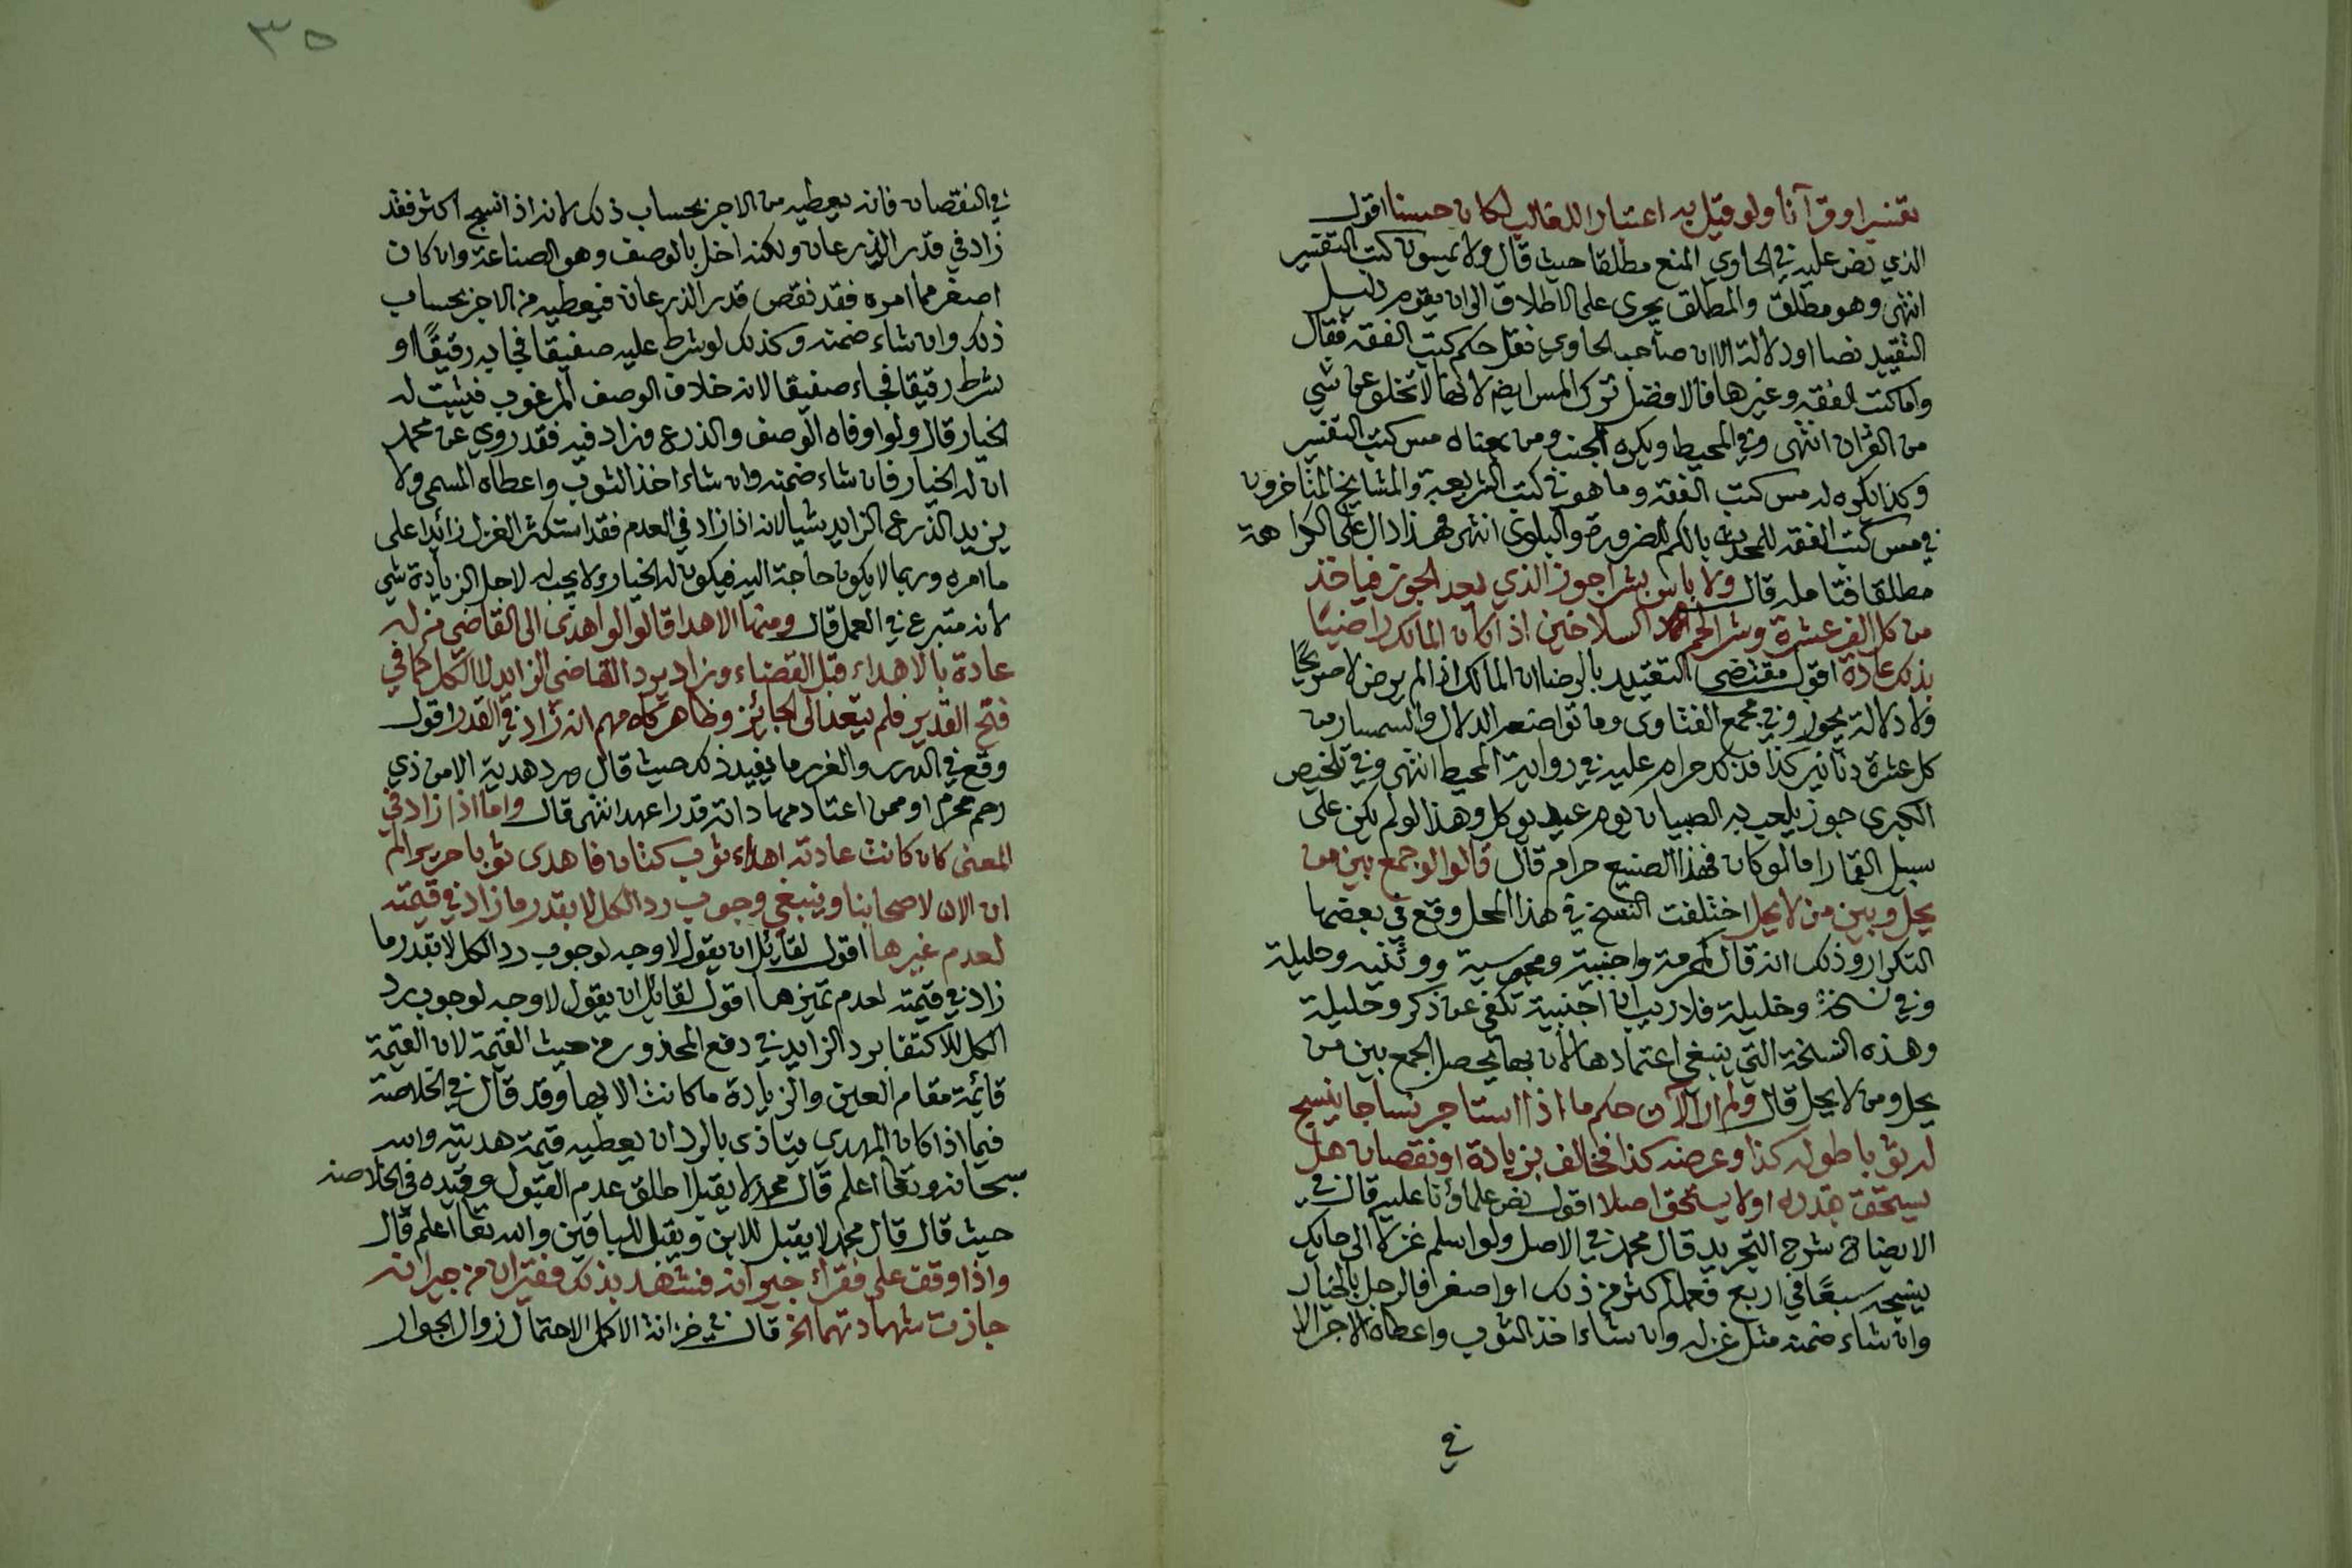 تفسيرا او قرآنا ولو قيل به اعتبارا للغالب لكان حسنا اقول
الذي نص عليه في الحاوي المنع مطلقا حيث قال ولا يمسون كتب التفسير
انتهى وهو مطلق والمطلق يجرى على الاطلاق الى ان يقوم دليل
التقييد نصا او دلالة الا ان صاحب الحاوي نقل حكم كتب الفقه فقال
واما كتب الفقه وغيرها فالافضل ترك المس ايضا لانها لا تخلو عن شي
من القران انتهى وفي المحيط ويكره للجنب ومن بمعناه مس كتب التفسير
وكذا يكره له مس كتب الفقه وما هو في كتب الشريعة والمشايخ المتاخرون
في مس كتب الفقه للمحدث بالكم للضرورة والبلوى انتهى فهذا دال على الكراهة
مطلقا فتامله قال ولا باس بشرا جوز الذي يعد الجوز فياخذ
من كل الف عشرة وشرا لحم السلاخين اذا كان المالك راضيا
بذلك عادة اقول مقتضى التقييد بالرضا ان المالك اذا لم يرض لا صريحًا
ولا دلالة يجوز وفي مجمع الفتاوى وما تواضعه الدلال والسمسار من
كل عشرة دنانير كذا فذلك حرام عليه في رواية المحيط انتهى وفي تلخيص
الكبرى جوز يلعب به الصبيان يوم عيد يوكل وهذا لو لم يكن على
سبيل القمار اما لو كان فهذا الصنيع حرام قال قالوا لو جمع بين من
يحل وبين من لا يحل اختلفت النسخ في هذا المحل وقع في بعضها
التكرار وذلك انه قال كمحرمة واجنبية ومجوسية ووثنية وحليلة
وفي نسخة وخليلة فلا ريب ان اجنبية تكفي عن ذكر وخليلة
وهذه النسخة التي ينبغي اعتمادها لان بها يحصل الجمع بين من
يحل ومن لا يحل قال ولم ار الآن حكم ما اذا استاجر نساجا ينسج
له ثوبا طوله كذا وعرضه كذا فخالف بزيادة او نقصان هل
يستحق بقدره او لا يستحق اصلا اقول نص علماؤنا عليه قال في
الايضاح شرح التجريد قال محمد في الاصل ولو اسلم غزلا الى حايك
ينسجه سبعًا في اربع فعمله اكثر من ذلك او اصغر فالرجل بالخيار
وان شاء ضمنه مثل غزله وان شاء اخذ الثوب واعطاه الاجر الا
في
٣٥
في النقصان فانه يعطيه من الاجر بحساب ذلك لانه اذا انسج اكثر فقد
زاد في قدر الذرعان ولكنه اخل بالوصف وهو الصناعة وان كان
اصغر مما امره فقد نقص قدر الذرعان فيعطيه من الاجر بحساب
ذلك وان شاء ضمنه وكذلك لو شرط عليه صفيقا فجا به رقيقًا او
شرط رقيقا فجاء صفيقا لانه خلاف الوصف المرغوب فيثبت له
الخيار قال ولو اوفاه الوصف والذرع وزاد فيه فقد روي عن محمد
ان له الخيار فان شاء ضمنه وان شاء اخذ الثوب واعطاه المسمى ولا
يزيد الذرع الزايد شيا لانه اذا زاد في العدم فقد استكثر الغزل زائدا على
ما امره وربما لا يكون حاجة اليه فيكون له الخيار ولا يجب له لاجل الزيادة شي
لانه متبرع في العمل قال ومنها الاهدا قالوا لو اهدى الى القاضي من له
عادة بالاهداء قبل القضاء وزاد يرد القاضي الزايد لا الكل كما في
فتح القدير فلم يتعد الى الجائز وظاهر كلامهم انه زاد في القدر اقول
وقع في الدرر والغرر ما يفيد ذلك حيث قال ورد هدية الا من ذي
رحم محرم او ممن اعتاد مهاداته قدرا عهد انتهى قال واما اذا زاد في
المعنى كان كانت عادته اهداء ثوب كتان فاهدى ثوبا حريرا لم
ار الان لاصحابنا وينبغي وجوب رد الكل لا بقدر ما زاد في قيمته
لعدم غيرها اقول لقائل ان يقول لا وجه لوجوب رد الكل لا بقدر ما
زاد في قيمته لعدم تميزها اقول لقائل ان يقول لا وجه لوجوب رد
الكل للاكتفا برد الزايد في دفع المحذور من حيث القيمة لان القيمة
قائمة مقام العين والزيادة ما كانت الا بها وقد قال في الخلاصة
فيما اذا كان المهدي يتاذى بالرد ان يعطيه قيمة هديته والله
سبحانه وتعالى اعلم قال محمد لا يقبل اطلق عدم القبول وقيده في الخلاصة
حيث قال قال محمد لا يقبل للابن ويقبل للباقين والله تعالى اعلم قال
واذا وقف على فقراء جيرانه فشهد بذلك فقيران من جيرانه
جازت شهادتهما الخ قال في خزانة الاكمل لاحتمال زوال الجوار